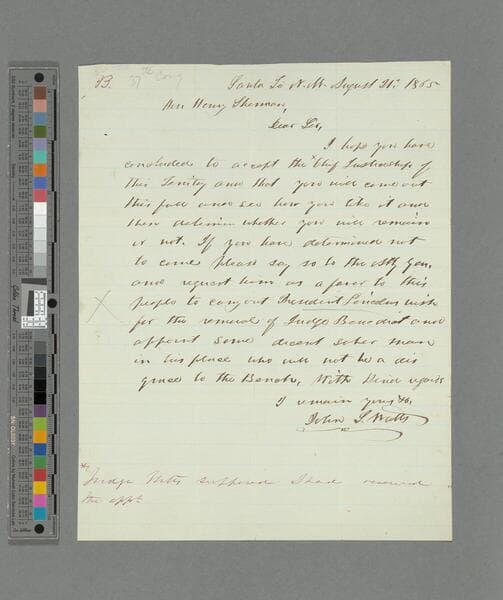 B.
37th Cong
Santa Fe N. M. August 21: 1865
Hon Henry Sherman,
Dear Sir,
I hope you have
concluded to accept the Chf Justiceship of
this Territy and that you will come out
this fall and see how you like it and
then determin whether you will remain
or not. If you have determined not
to come please say so to the Atty Gen.
and request him as a favor to this
people to carry out President Lincolns wish
for the removal of Judge Benedict and
appoint some decent sober man
in his place who will not be a dis
grace to the Bench, With kind regards
I remain yours &c,
John S. Watts
Judge Watts supposed I had received
the appt